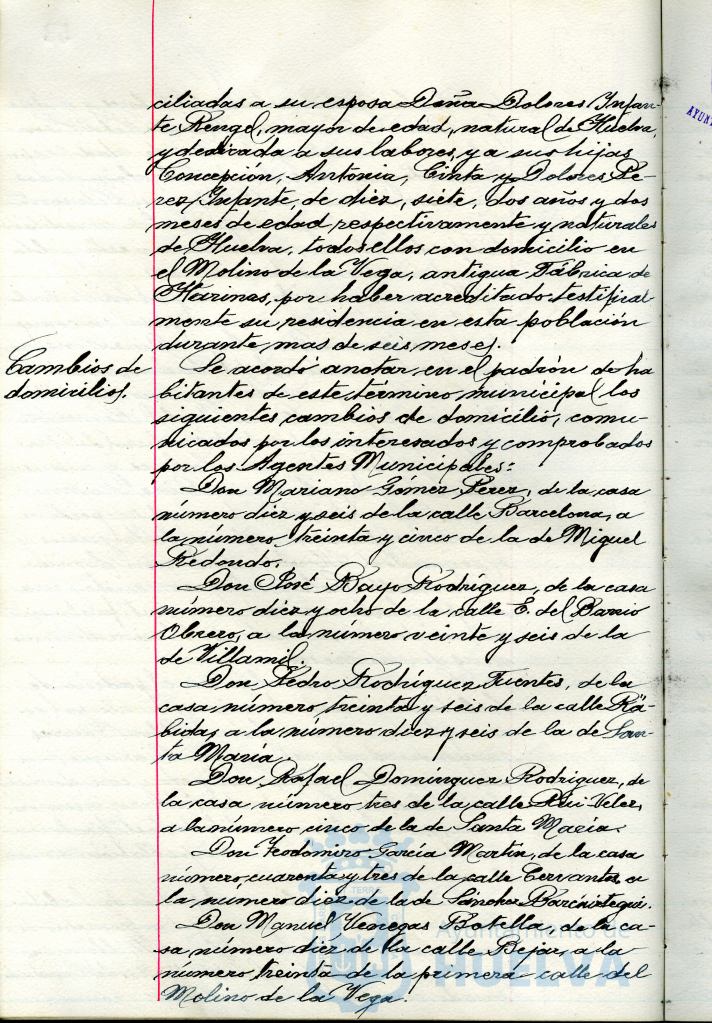 ciliadas a su esposa Doña Dolores Infan-
te Rengel, mayor de edad, natural de Huelva,
y dedicada a sus labores, y a sus hijas
Concepción, Antonia, Cinta y Dolores Pé-
rez Infante, de diez, siete, dos años y dos
meses de edad respectivamente y naturales
de Huelva, todos ellos con domicilio en
el Molino de la Vega, antigua Fábrica de
Harinas, por haber acreditado testifical
mente su residencia en esta población
durante mas de seis meses.
Cambios de
domicilios.
Se acordó anotar en el padrón de ha
bitantes de este término municipal los
siguientes cambios de domicilio, comu-
nicados por los interesados y comprobados
por los Agentes Municipales:
Don Mariano Gómez Perez, de la casa
número diez y seis de la calle Barcelona, a
la número treinta y cinco de la de Miguel
Redondo.
Don José Bayo Rodríguez, de la casa
número diez y ocho de la calle E. del Barrio
Obrero, a la número veinte y seis de la
de Villamil.
Don Pedro Rodríguez Fuentes, de la
casa número treinta y seis de la calle Rá-
bida, a la número diez y seis de la de San-
ta María
Don Rafael Domínguez Rodriguez, de
la casa número tres de la calle Rui-Velez,
a la número cinco de la de Santa María.
Don Teodomiro García Martín, de la casa
número cuarenta y tres de la calle Cervantes, a
la número diez de la de Sánchez Barcáiztegui.
Don Manuel Venegas Botilla, de la ca-
sa número diez de la calle Bejar, a la
número treinta de la primera calle del
Molino de la Vega.
Ayuntamiento de
HUELVA